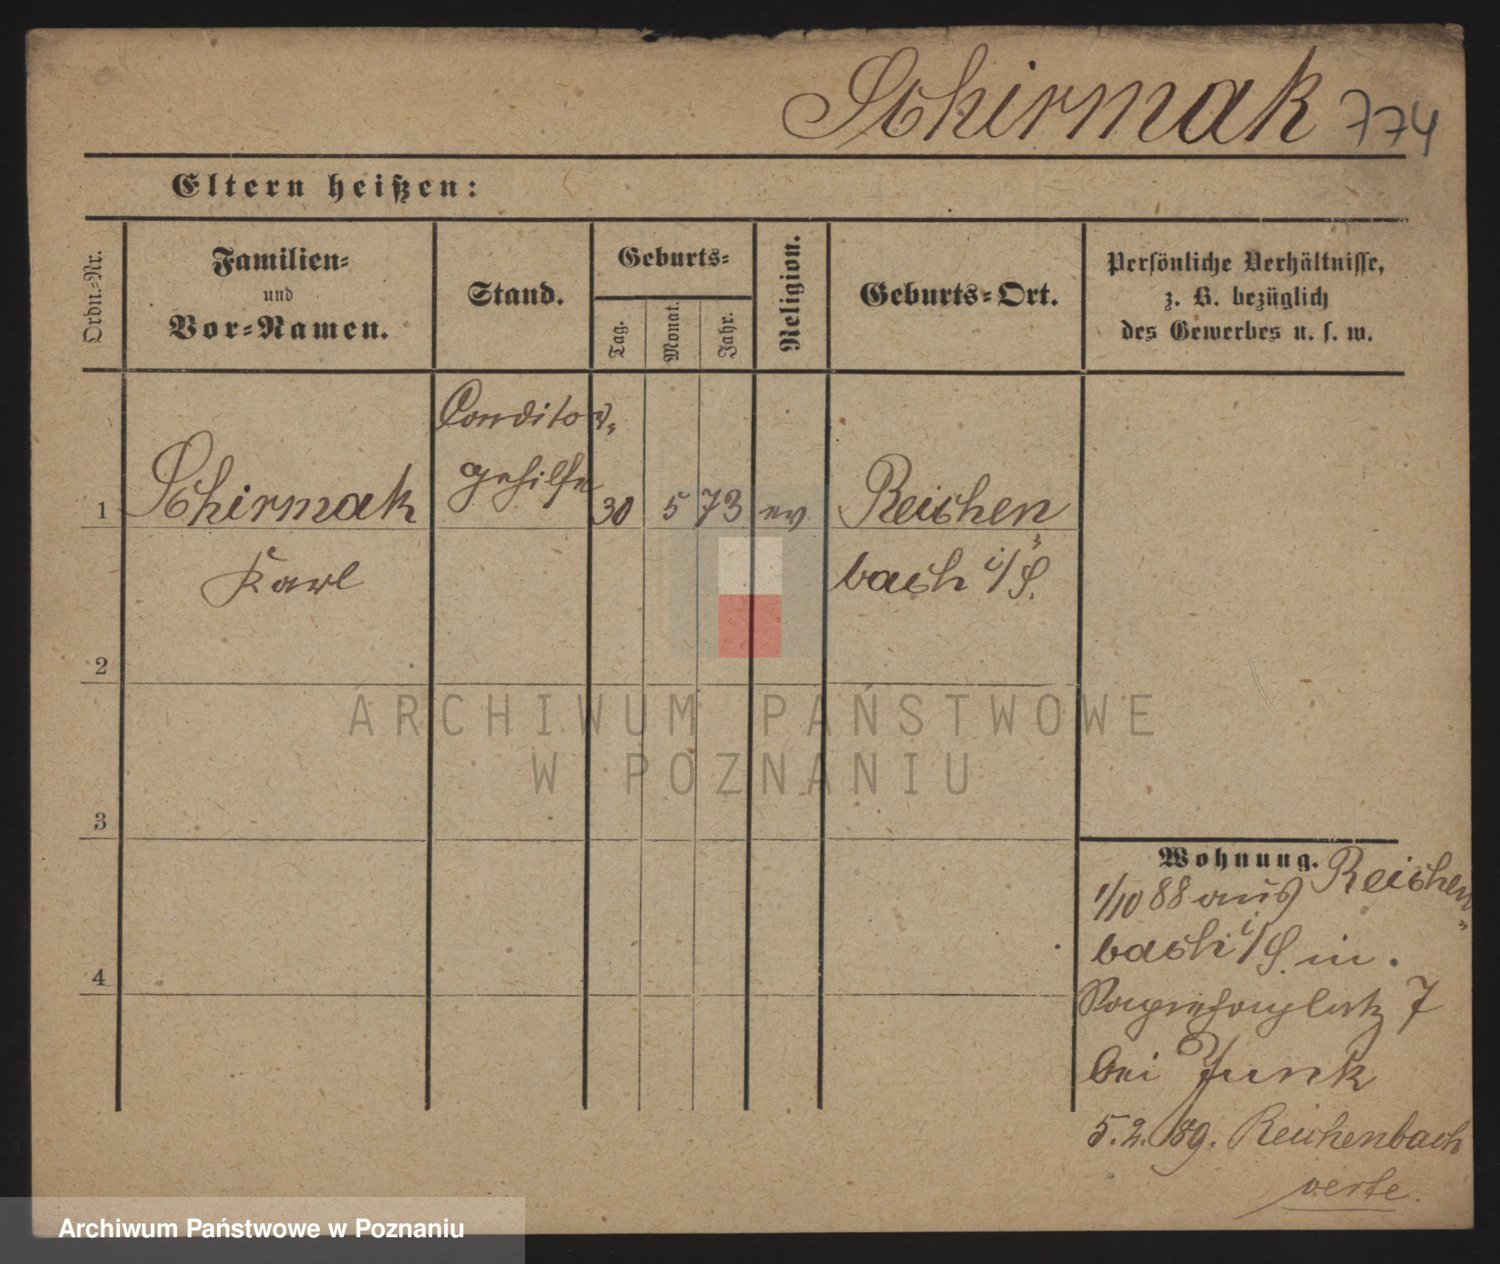 Schirmak 774
Eltern heißen:
Ordn.-Nr.
Familien-
und
Vor-Namen.
Stand.
Geburts-
Tag.
Monat.
Jahr.
Religion.
Geburts-Ort.
Persönliche Verhältnisse,
z. B. bezüglich
des Gewerbes u. s. w.
Conditor-
gehilfe
1 Schirmak 30 5 73 ev Reichen
Karl bach i/S.
2
3
4
Wohnung.
1/10 88 aus Reichen-
bach i/S. in
Sapiehaplatz 7
bei Junk
5.2.89. Reichenbach
verte.
ARCHIWUM PAŃSTWOWE
W POZNANIU
Archiwum Państwowe w Poznaniu